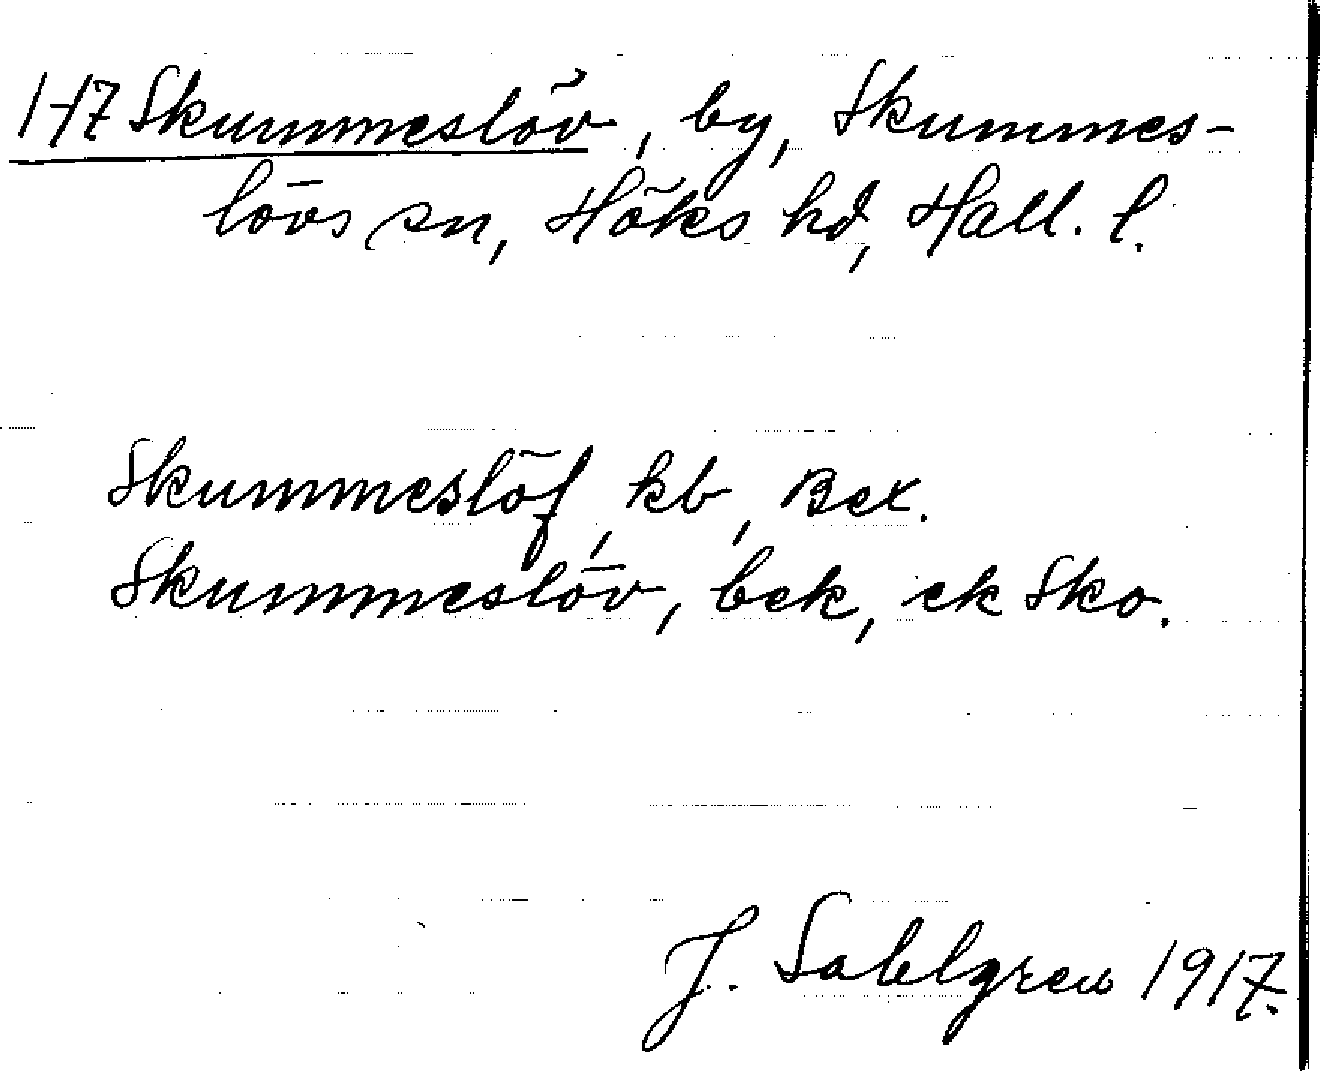 1-17 Skummeslöv, by, Skummes-
lövs sn, Höks hd, Hall. l.
Skummeslöf, kb, Bex.
Skummeslöv, bek, ek Sko.
J. Sahlgren 1917.